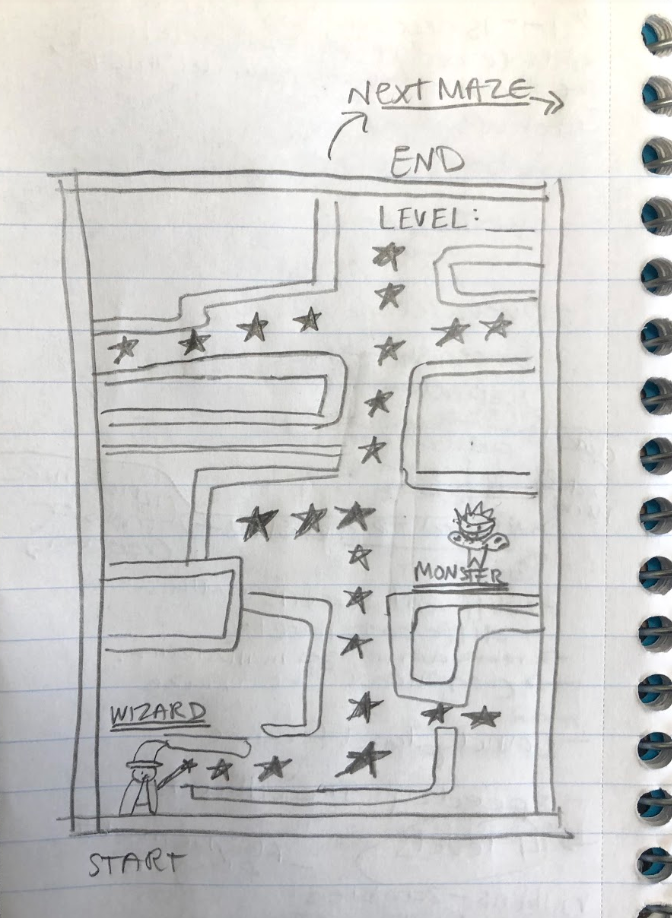 NextMAZE
END
LEVEL: __
MONSTER
WIZARD
START